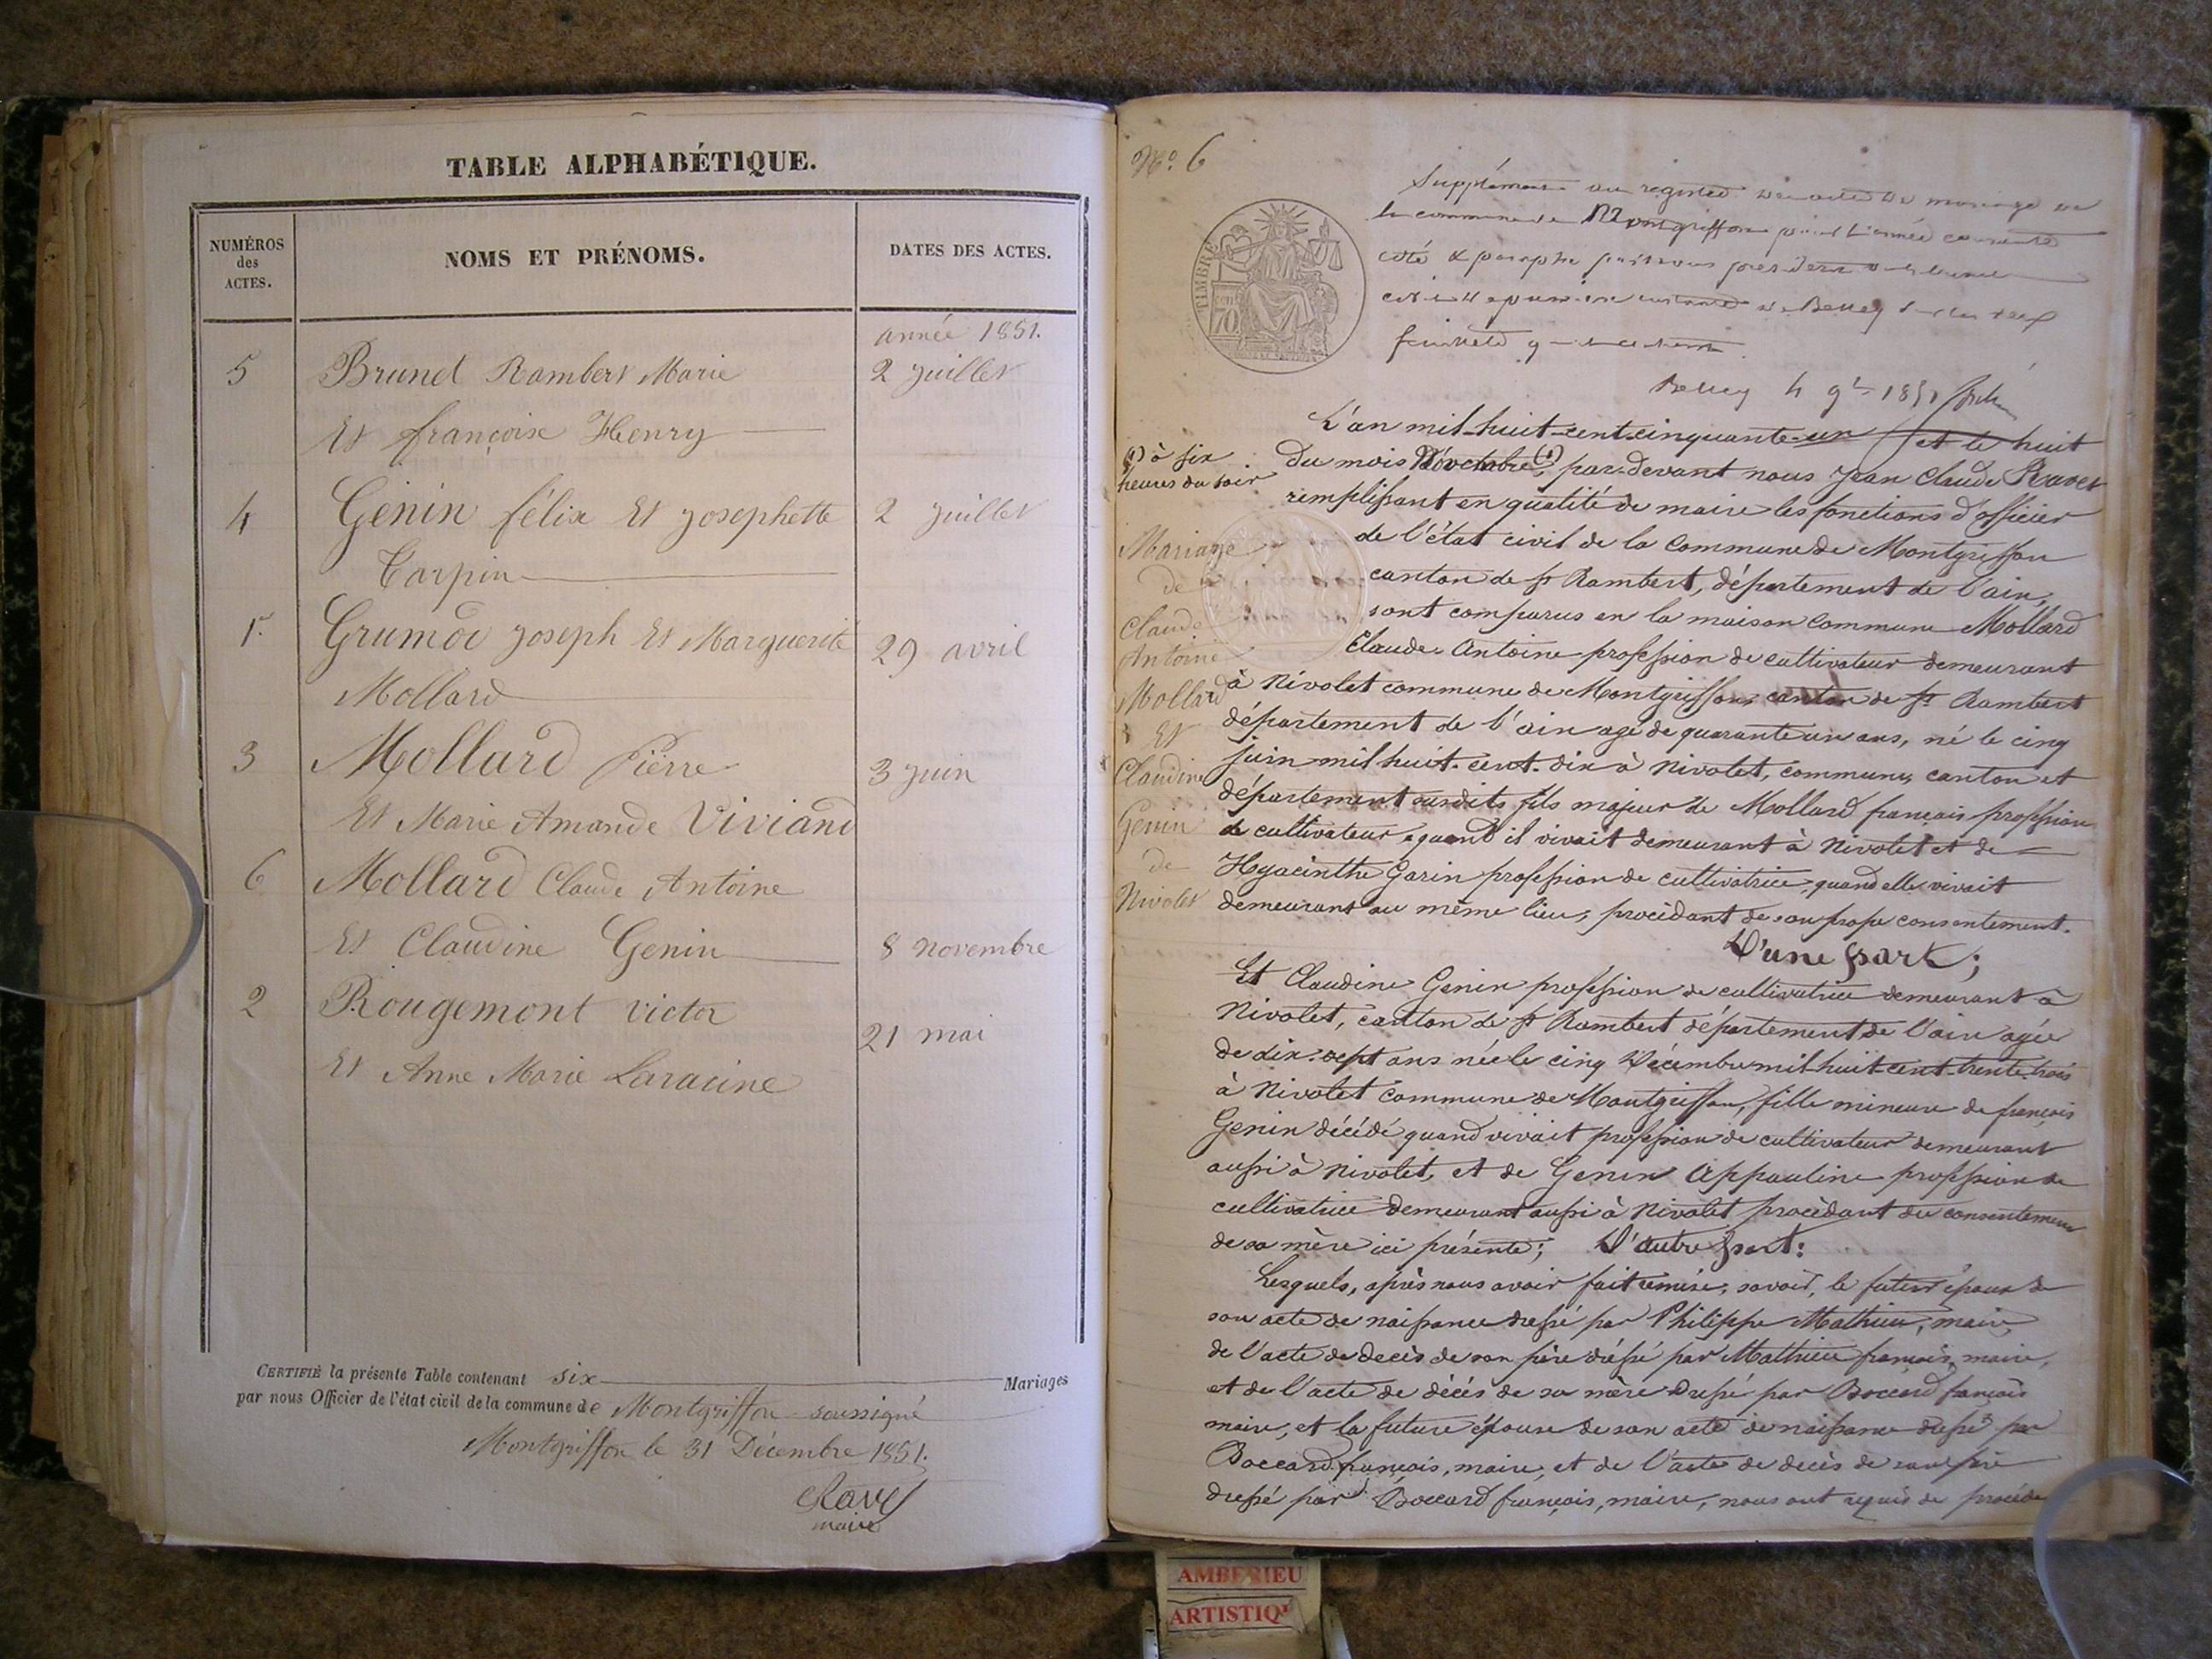 TABLE ALPHABÉTIQUE.
NUMÉROS
des
ACTES.
NOMS ET PRÉNOMS.
DATES DES ACTES.
année 1851.
5 Brunet Rambert Marie 2 juillet
Et françoise Henry
4 Génin félix Et josephette 2 juillet
Carpin
1er Grumod joseph Et Marguerite 29 avril
Mollard
3 Mollard Pierre 3 juin
Et Marie Amande Viviand
6 Mollard Claude Antoine
Et Claudine Genin 8 novembre
2 Rougemont victor 21 mai
Et Anne Marie Laracine
CERTIFIÉ la présente Table contenant six Mariages
par nous Officier de l'état civil de la commune de Montgriffon soussigné
Montgriffon le 31 Décembre 1851.
Ravet
maire
No. 6
TIMBRE
70
Supplément au registre des actes de mariage de
la commune de Montgriffon pour l'année courante
coté & paraphé par nous président
de Belley
Belley 4 9bre 1851
L'an mil-huit-cent-cinquante-un et le huit
(1) à six
heures du soir
du mois Novembre (1), par-devant nous jean Claude Ravet
remplissant en qualité de maire les fonctions d'officier
de l'état civil de la Commune de Montgriffon
canton de st Rambert, département de l'ain,
sont comparus en la maison Commune Mollard
Claude Antoine profession de cultivateur demeurant
à Nivolet commune de Montgriffon, canton de st Rambert
département de l'ain agé de quarante un ans, né le cinq
juin mil huit-cent-dix à Nivolet, commune, canton et
département susdits fils majeur de Mollard français profession
de cultivateur, quand il vivait demeurant à Nivolet et de
Hyacinthe Garin profession de cultivatrice, quand elle vivait
demeurant au même lieu, procédant de son propre consentement.
D'une part;
Mariage
de
Claude
Antoine
Mollard
Et
Claudine
Genin
de
Nivolet
Et Claudine Genin profession de cultivatrice demeurant à
Nivolet, canton de st Rambert département de l'ain agée
de dix-sept ans née le cinq Décembre mil-huit-cent-trente-trois
à Nivolet Commune de Montgriffon, fille mineure de françois
Genin décédé quand vivait profession de cultivateur demeurant
aussi à Nivolet, et de Genin Appauline profession de
cultivatrice demeurant aussi à Nivolet procédant du consentement
de sa mère ici présente; D'autre part:
Lesquels, après nous avoir fait remise, savoir, le futur époux de
son acte de naissance dressé par Philippe Mathieu, maire,
de l'acte de décès de son père dréssé par Mathieu françois, maire,
et de l'acte de décès de sa mère dressé par Boccard françois
maire, et la future épouse de son acte de naissance dressé par
Boccard françois, maire, et de l'acte de decès de son père
dressé par Boccard françois, maire, nous ont requis de procéder
AMBERIEU
ARTISTIQ